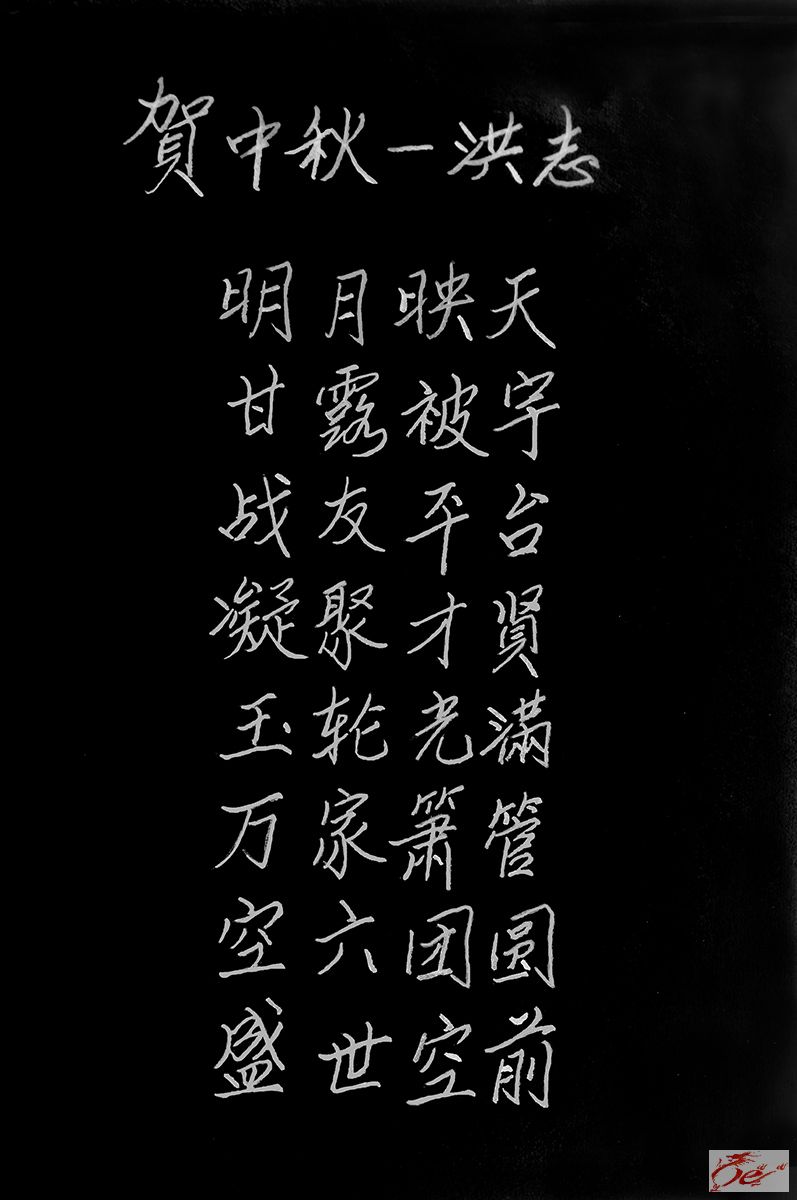 賀中秋一洪志
明月映天
甘露被宇
战友平台
凝聚才贤
玉轮光满
万家箫管
空六团圆
盛世空前